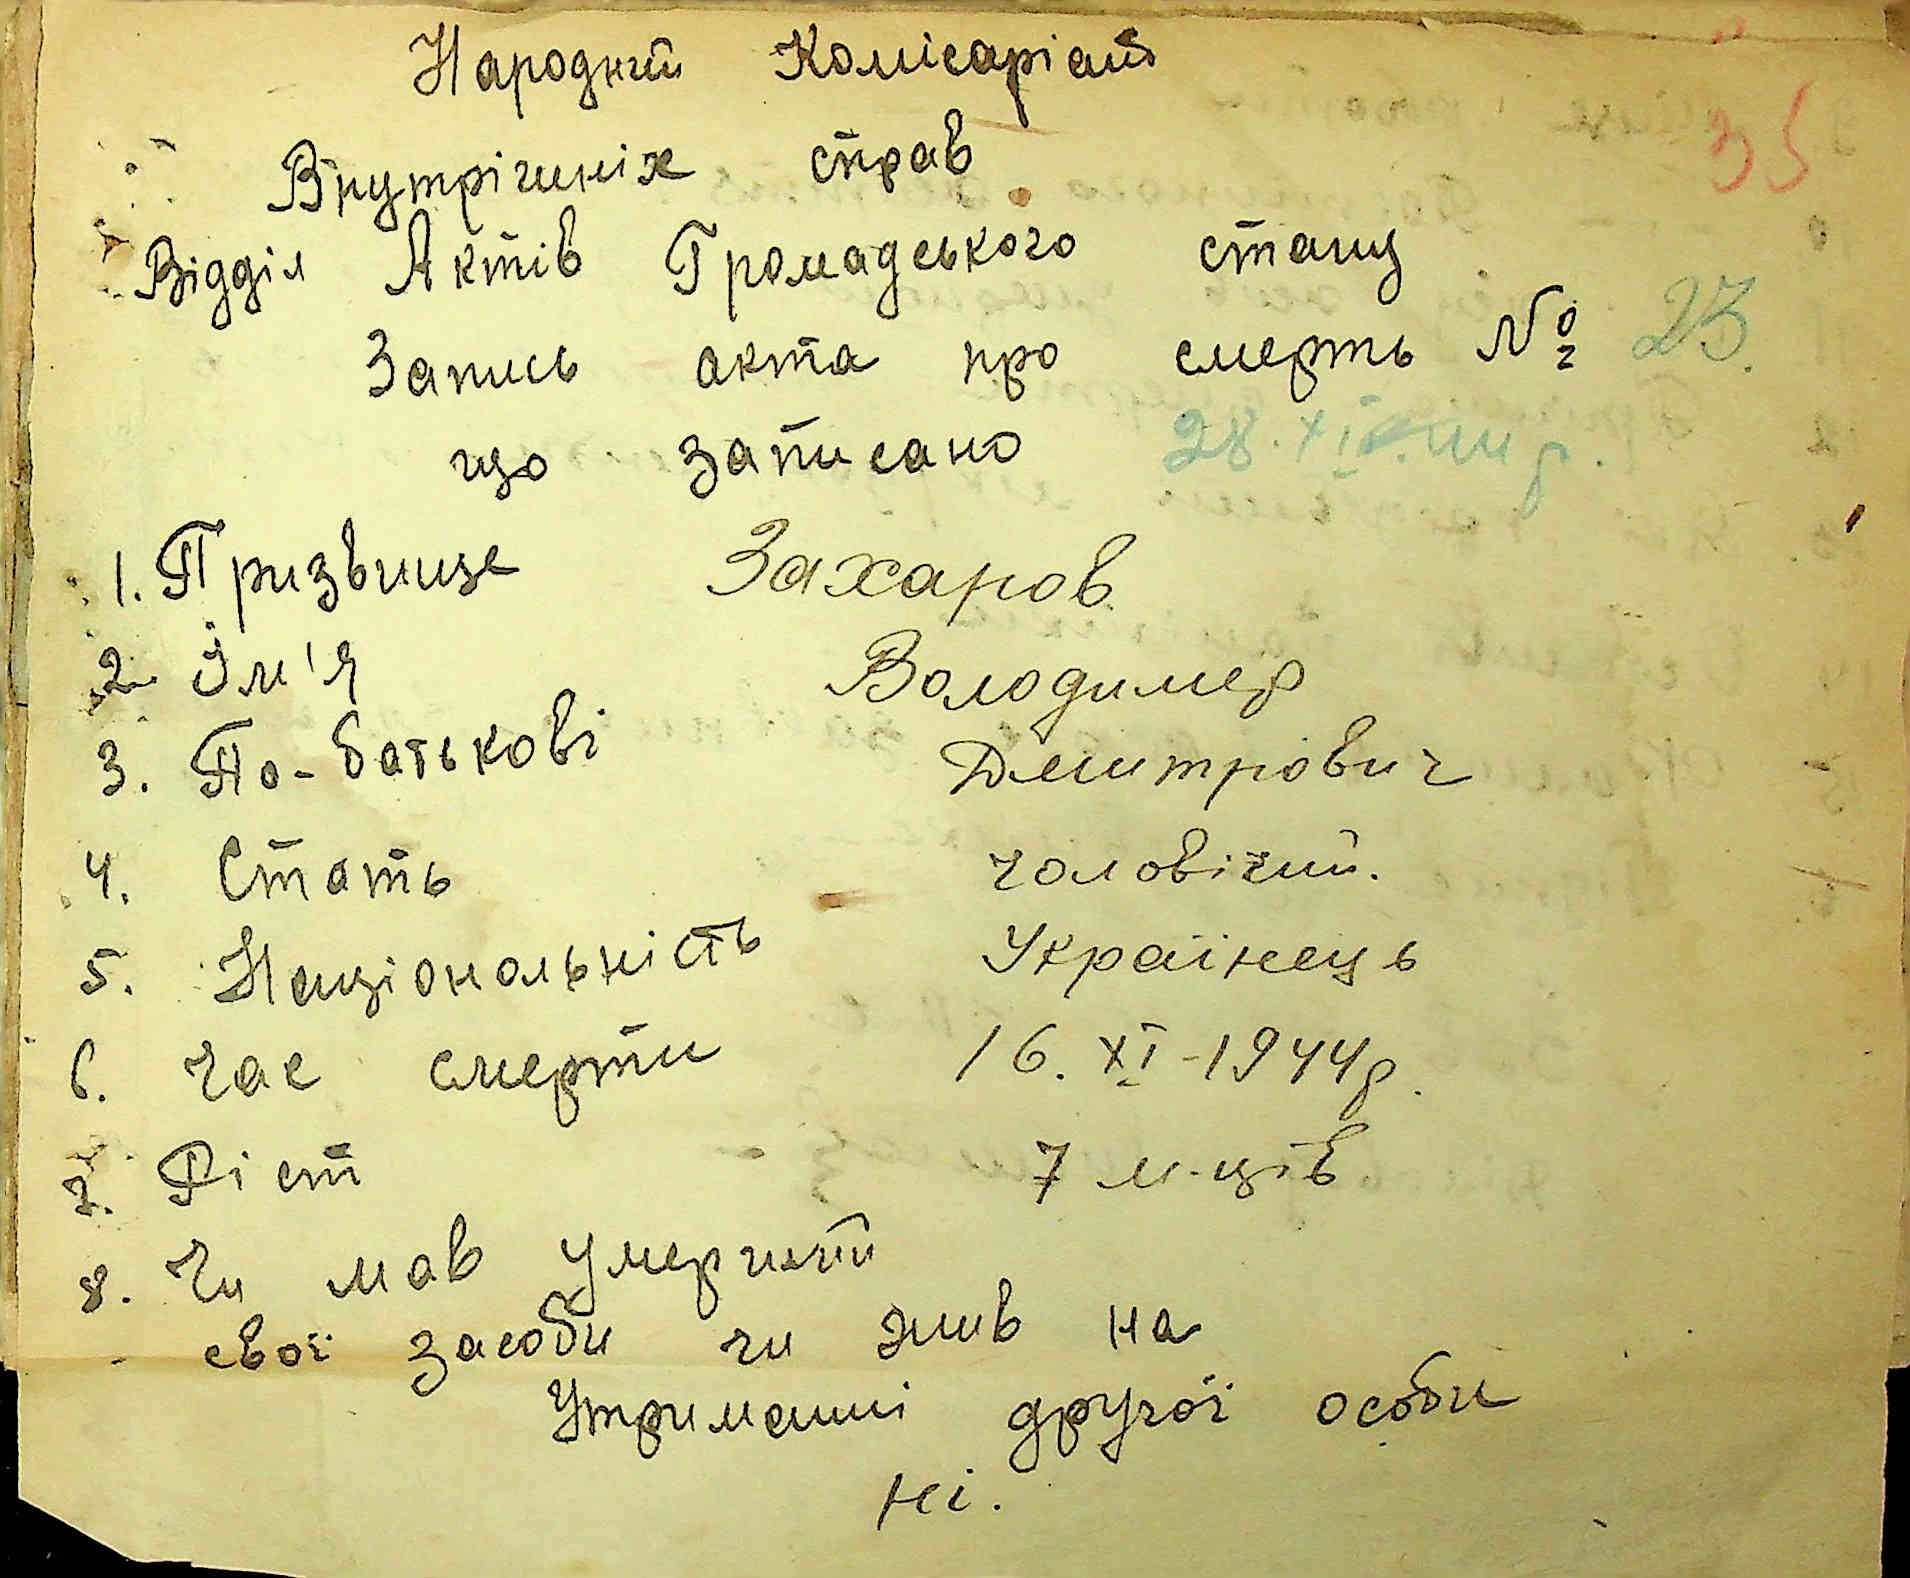 35
Народний Комісаріат
Внутрішніх справ
Відділ Актів Громадського стану
Запись акта про смерть № 23.
що записано 28.XI.44 р.
1. Призвище Захаров
2. Їм'я Володимер
3. По-батькові Дмитрович
4. Стать чоловічий.
5. Національність Українець
6. Час смерти 16.XI-1944р.
7. Ріст 7 м-ців
8. Чи мав умерший
свої засоби чи жив на
утриманні другої особи
ні.